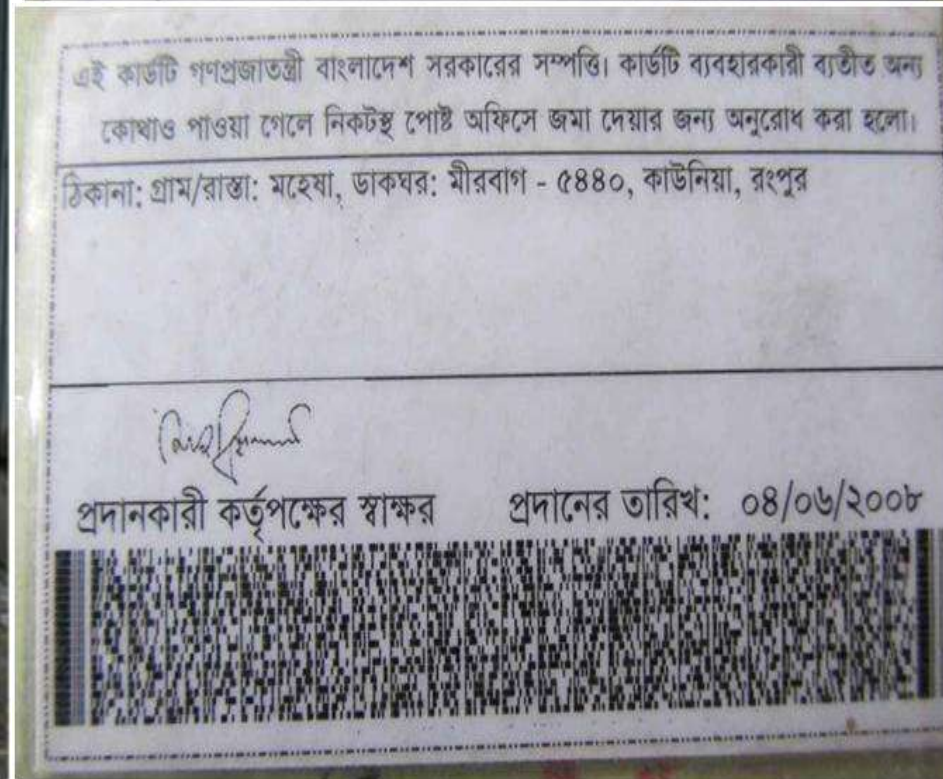 এই কার্ডটি গণপ্রজাতন্ত্রী বাংলাদেশ সরকারের সম্পত্তি। কার্ডটি ব্যবহারকারী ব্যতীত অন্য
কোথাও পাওয়া গেলে নিকটস্থ পোষ্ট অফিসে জমা দেয়ার জন্য অনুরোধ করা হলো।
ঠিকানা: গ্রাম/রাস্তা: মহেষা, ডাকঘর: মীরবাগ - ৫৪৪০, কাউনিয়া, রংপুর
প্রদানকারী কর্তৃপক্ষের স্বাক্ষর প্রদানের তারিখ: ০৪/০৬/২০০৮